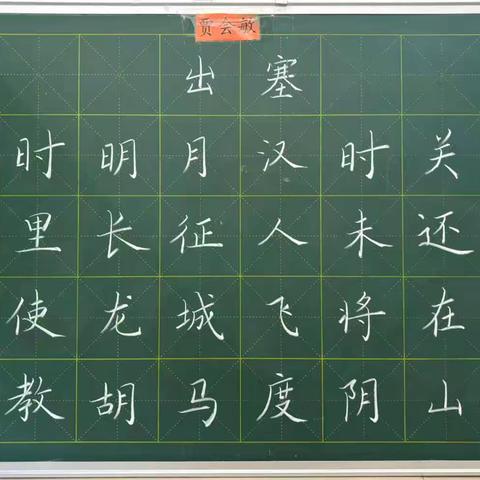 贾会敏
出塞
时明月汉时关
里长征人未还
使龙城飞将在
教胡马度阴山